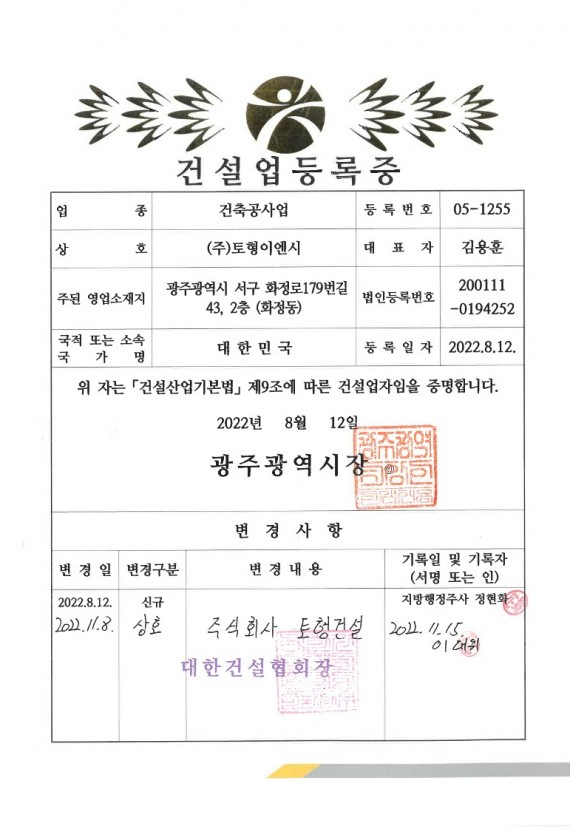 건설업등록증
업 종 건축공사업 등록번호 05-1255
상 호 (주)토형이엔시 대 표 자 김용훈
주된 영업소재지 광주광역시 서구 화정로179번길 43, 2층 (화정동) 법인등록번호 200111 -0194252
국적 또는 소속 국 가 명 대한민국 등록일자 2022.8.12.
위 자는 「건설산업기본법」 제9조에 따른 건설업자임을 증명합니다.
2022년 8월 12일
광주광역시장
변 경 사 항
변 경 일 변경구분 변 경 내 용 기록일 및 기록자 (서명 또는 인)
2022.8.12. 신규 지방행정주사 정현화
2022.11.8. 상호 주식회사 토형건설 2022.11.15.
이대위
대한건설협회장